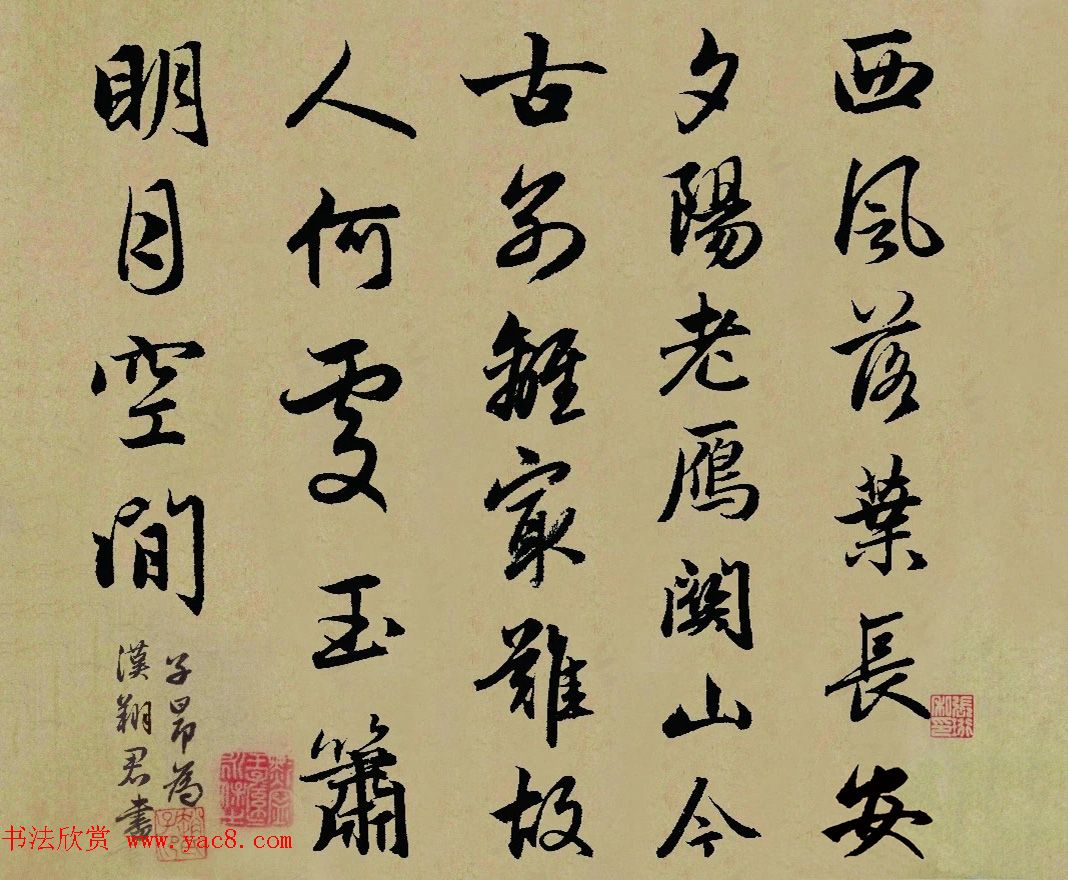 西風落葉長安
夕陽老鴈關山今
古別離最難故
人何處玉簫
明月空間
子昂為
漢翔君書
书法欣赏 www.yac8.com